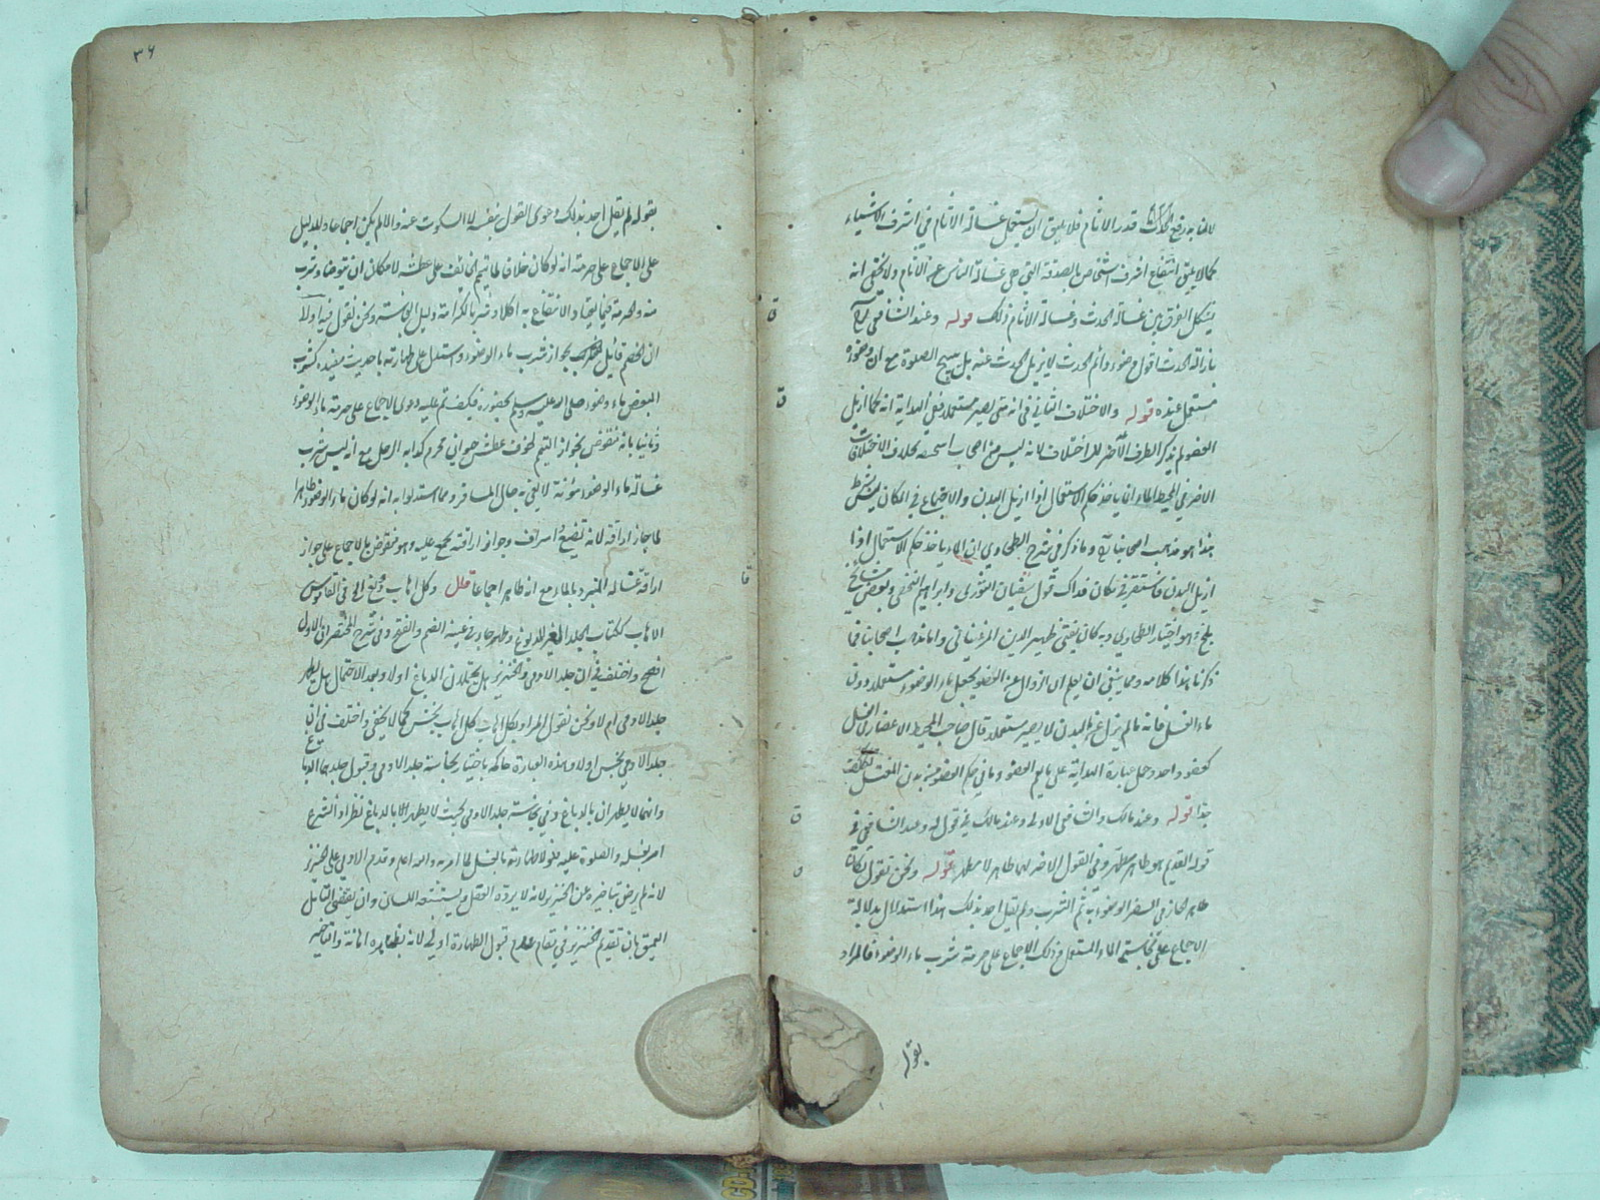 قدر الآثام فلا يليق ان يستعمل غسالة الآثام في اشرف الاشياء
كما لا يليق انتفاع اشرف اشخاص بالصدقة التي هي غسالة الناس عن الآثام ولا يخفى انه
يشكل الفرق بين غسالة الحدث وغسالة الآثام ذلك قوله وعند الشافعي
بازالة الحدث اقول وضوء دائم الحدث لا يزيل الحدث عنه بل يبيح الصلوة مع ان وضوءه
مستعمل عنده قوله والاختلاف الثاني في انه متى يصير مستعملا ففي الهداية انه كما ازيل
العضو لم يذكر الطرف الآخر للاختلاف لانه ليس من اصحاب بخلاف الاختلافات
الاخر في المحيط الماء انما ياخذ حكم الاستعمال اذا ازيل البدن والاجتماع في المكان ليس بشرط
هذا هو مذهب اصحابنا وما ذكر في شرح الطحاوي ان الماء ياخذ حكم الاستعمال اذا
ازيل البدن فاستقر في مكان فذاك قول سفيان الثوري وابراهيم النخعي وبعض مشايخ
بلخ وهو اختيار الطحاوي وبه كان يفتي ظهير الدين المرغيناني واما مذهب اصحابنا فما
ذكرنا هذا كلامه ومما ينبغي ان يعلم ان الزوال عن العضو يجعل ماء الوضوء مستعملا دون
ماء الغسل فانه ما لم يزل عن البدن لا يصير مستعملا قال صاحب المحيط الاعضاء في الغسل
كعضو واحد وحمل عبارة الهداية على ما يعم العضو وما في حكم العضو من بدن المغتسل تكلف
جدا قوله وعند مالك والشافعي الاولى وعند مالك في قول له وعند الشافعي في
قوله القديم هو طاهر مطهر وفي القول الآخر لهما طاهر لا مطهر قوله ونحن نقول لو كان
طاهرا لجاز في السفر الوضوء به ثم الشرب ولم يقل احد بذلك هذا استدلال بدلالة
الاجماع على نجاسة الماء المستعمل وذلك الاجماع على حرمة شرب ماء الوضوء فالمراد
بقوله
٣٦
بقوله لم يقل احد بذلك دعوى القول بنفيه لا السكوت عنه والا لم يكن اجماعا والدليل
على الاجماع على حرمته انه لو كان خلاف لما تيمم الخائف على عطشه لامكان ان يتوضأ ويشرب
منه والحرمة فيما والانتفاع به اكلا وشربا لكرامته دليل النجاسة ونحن نقول فيه اولا
ان الخصم قائل بجواز شرب ماء الوضوء واستدل على طهارته باحاديث مفيدة كشرب
البعض ماء وضوء صلى الله عليه وسلم بحضوره فكيف تم عليه دعوى الاجماع على حرمة ماء الوضوء
وثانيا بانه منقوض بجواز التيمم لخوف عطش حيوان محرم كدابة الرجل مع انه ليس شرب
غسالة ماء الوضوء مؤنة لا يفي به حال المسافر ومما استدلوا به انه لو كان ماء الوضوء طاهرا
لما جاز اراقته لانه تضييع واسراف وجواز اراقته مجمع عليه وهو منقوض بالاجماع على جواز
اراقة غسالة المتبرد بالماء مع انه طاهر اجماعا قال وكل اهاب دبغ الخ في القاموس
الاهاب ككتاب الجلد الغير المدبوغ وطهر جاء في عينه الضم والفتح وفي شرح المختصر ان الاول
افصح واختلف في ان جلد الآدمي والخنزير هل يحتملان الدباغ اولا وبعد الاحتمال هل يطهر
جلد الآدمي ام لا ونحن نقول المراد بكل اهاب كل اهاب نجس كما لا يخفى واختلف في ان
جلد الآدمي نجس اولا وهذه العبارة حاكمة باختيار نجاسة جلد الآدمي وقبول جلدهما الدباغ
وانهما لا يطهران بالدباغ وفي نجاسة جلد الآدمي بحيث لا يطهر الا بالدباغ نظر اذ الشرع
امر بغسله والصلوة عليه فلولا طهارته بالغسل لما امر به والله اعلم وقدم الآدمي على الخنزير
لانه لم يرض بتاخيره عن الخنزير لانه لا يرده العقل ويستشنعه اللسان وان يقتضي التامل
العميق بان تقديم الخنزير في مقام عدم قبول الطهارة اولى لانه اهانة والتاخير